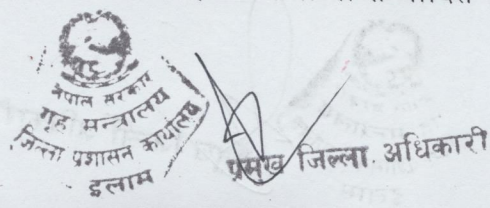 नेपाल सरकार
गृह मन्त्रालय
जिल्ला प्रशासन कार्यालय
इलाम
प्रमुख जिल्ला अधिकारी